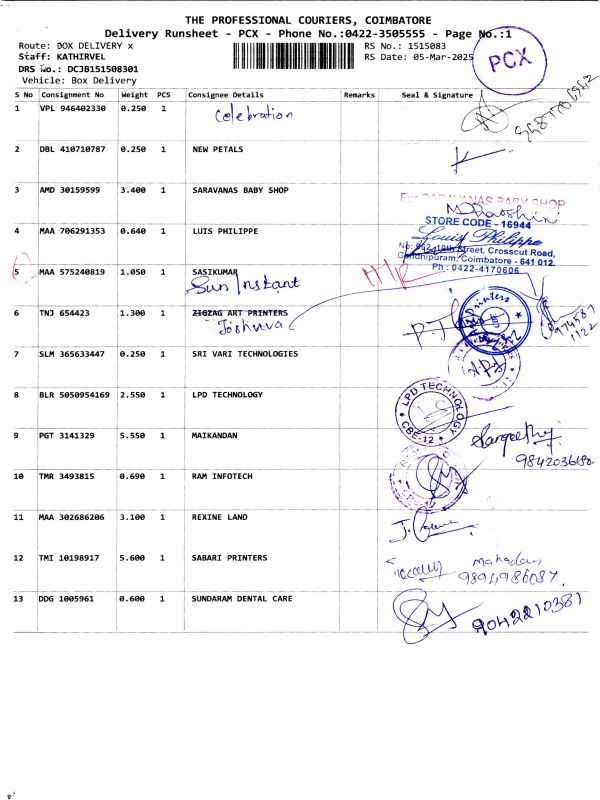 THE PROFESSIONAL COURIERS, COIMBATORE
Delivery Runsheet - PCX - Phone No.:0422-3505555 - Page No.:1
Route: BOX DELIVERY x
RS No.: 1515083
Staff: KATHIRVEL
RS Date: 05-Mar-2025
DRS No.: DCJB151508301
Vehicle: Box Delivery
PCX
S No Consignment No Weight PCS Consignee Details Remarks Seal & Signature
1 VPL 946402330 0.250 1 Celebration
2 DBL 410710787 0.250 1 NEW PETALS
3 AMD 30159599 3.400 1 SARAVANAS BABY SHOP
For SARAVANAS BABY SHOP
4 MAA 706291353 0.640 1 LUIS PHILIPPE
STORE CODE - 16944
Louis Philippe
Street, Crosscut Road,
Gandhipuram, Coimbatore - 641 012.
Ph : 0422-4170606
5 MAA 575240819 1.050 1 SASIKUMAR
Sun Instant
6 TNJ 654423 1.300 1 ZIGZAG ART PRINTERS
Joshuva
Printers
7 SLM 365633447 0.250 1 SRI VARI TECHNOLOGIES
8 BLR 5050954169 2.550 1 LPD TECHNOLOGY
LPD TECHNOLOGY
CBE-12
9 PGT 3141329 5.550 1 MAIKANDAN
10 TMR 3493815 0.690 1 RAM INFOTECH
11 MAA 302686206 3.100 1 REXINE LAND
12 TMI 10198917 5.600 1 SABARI PRINTERS
9894986087
13 DDG 1005961 0.600 1 SUNDARAM DENTAL CARE
9042210381